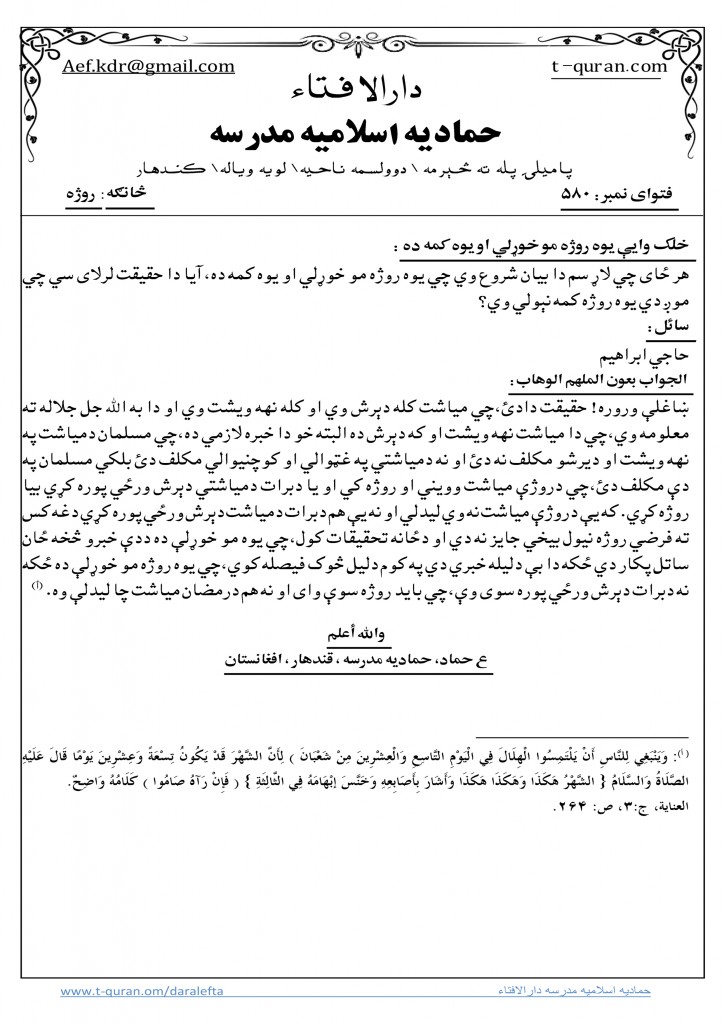 Aef.kdr@gmail.com
t-quran.com
دارالافتاء
حمادیه اسلامیه مدرسه
پامیلۍ پله ته څېرمه \ دوولسمه ناحیه\ لویه ویاله\ کندهار
فتوای نمبر: ۵۸۰
څانګه: روژه
خلک وايي یوه روژه مو خوړلې او یوه کمه ده :
هر ځای چي لاړ سم دا بیان شروع وي چي یوه روژه مو خوړلې او یوه کمه ده، آیا دا حقیقت لرلای سي چي
موږ دي یوه روژه کمه نېولې وي؟
سائل:
حاجي ابراهیم
الجواب بعون الملهم الوهاب:
ښاغلې وروره! حقیقت دادئ،چي میاشت کله دېرش وي او کله نهه ویشت وي او دا به الله جل جلاله ته
معلومه وي،چي دا میاشت نهه ویشت او که دېرش ده البته خو دا خبره لازمي ده،چي مسلمان دمیاشت په
نهه ویشت او دیرشو مکلف نه دئ او نه دمیاشتي په غټوالي او کوچنیوالي مکلف دئ بلکي مسلمان په
دې مکلف دئ،چي دروژې میاشت وویني او روژه کي او یا دبرات دمیاشتي دېرش ورځي پوره کړي بیا
روژه کړي. که یې دروژې میاشت نه وي لیدلې او نه یې هم دبرات دمیاشت دېرش ورځي پوره کړي دغه کس
ته فرضي روژه نیول بیخي جایز نه دي او دځانه تحقیقات کول،چي یوه مو خوړلې ده ددې خبرو څخه ځان
ساتل پکار دي ځکه دا بې دلیله خبرې دي په کوم دلیل څوک فیصله کوي،چي یوه روژه مو خوړلې ده ځکه
نه دبرات دېرش ورځي پوره سوی وې، چي باید روژه سوې وای او نه هم درمضان میاشت چا لیدلې وه. (۱)
والله أعلم
ع حماد، حمادیه مدرسه ، قندهار، افغانستان
(۱): وَيَنْبَغِي لِلنَّاسِ أَنْ يَلْتَمِسُوا الْهِلَالَ فِي الْيَوْمِ التَّاسِعِ وَالْعِشْرِينَ مِنْ شَعْبَانَ ) لِأَنَّ الشَّهْرَ قَدْ يَكُونُ تِسْعَةً وَعِشْرِينَ يَوْمًا قَالَ عَلَيْهِ
الصَّلَاةُ وَالسَّلَامُ { الشَّهْرُ هَكَذَا وَهَكَذَا هَكَذَا وَأَشَارَ بِأَصَابِعِهِ وَخَنَسَ إبْهَامَهُ فِي الثَّالِثَةِ } ( فَإِنْ رَآهُ صَامُوا ) كَلَامُهُ وَاضِحٌ.
العناية، ج:۳، ص: ۲۶۴.
www.t-quran.om/daralefta
حمادیه اسلامیه مدرسه دارالافتاء